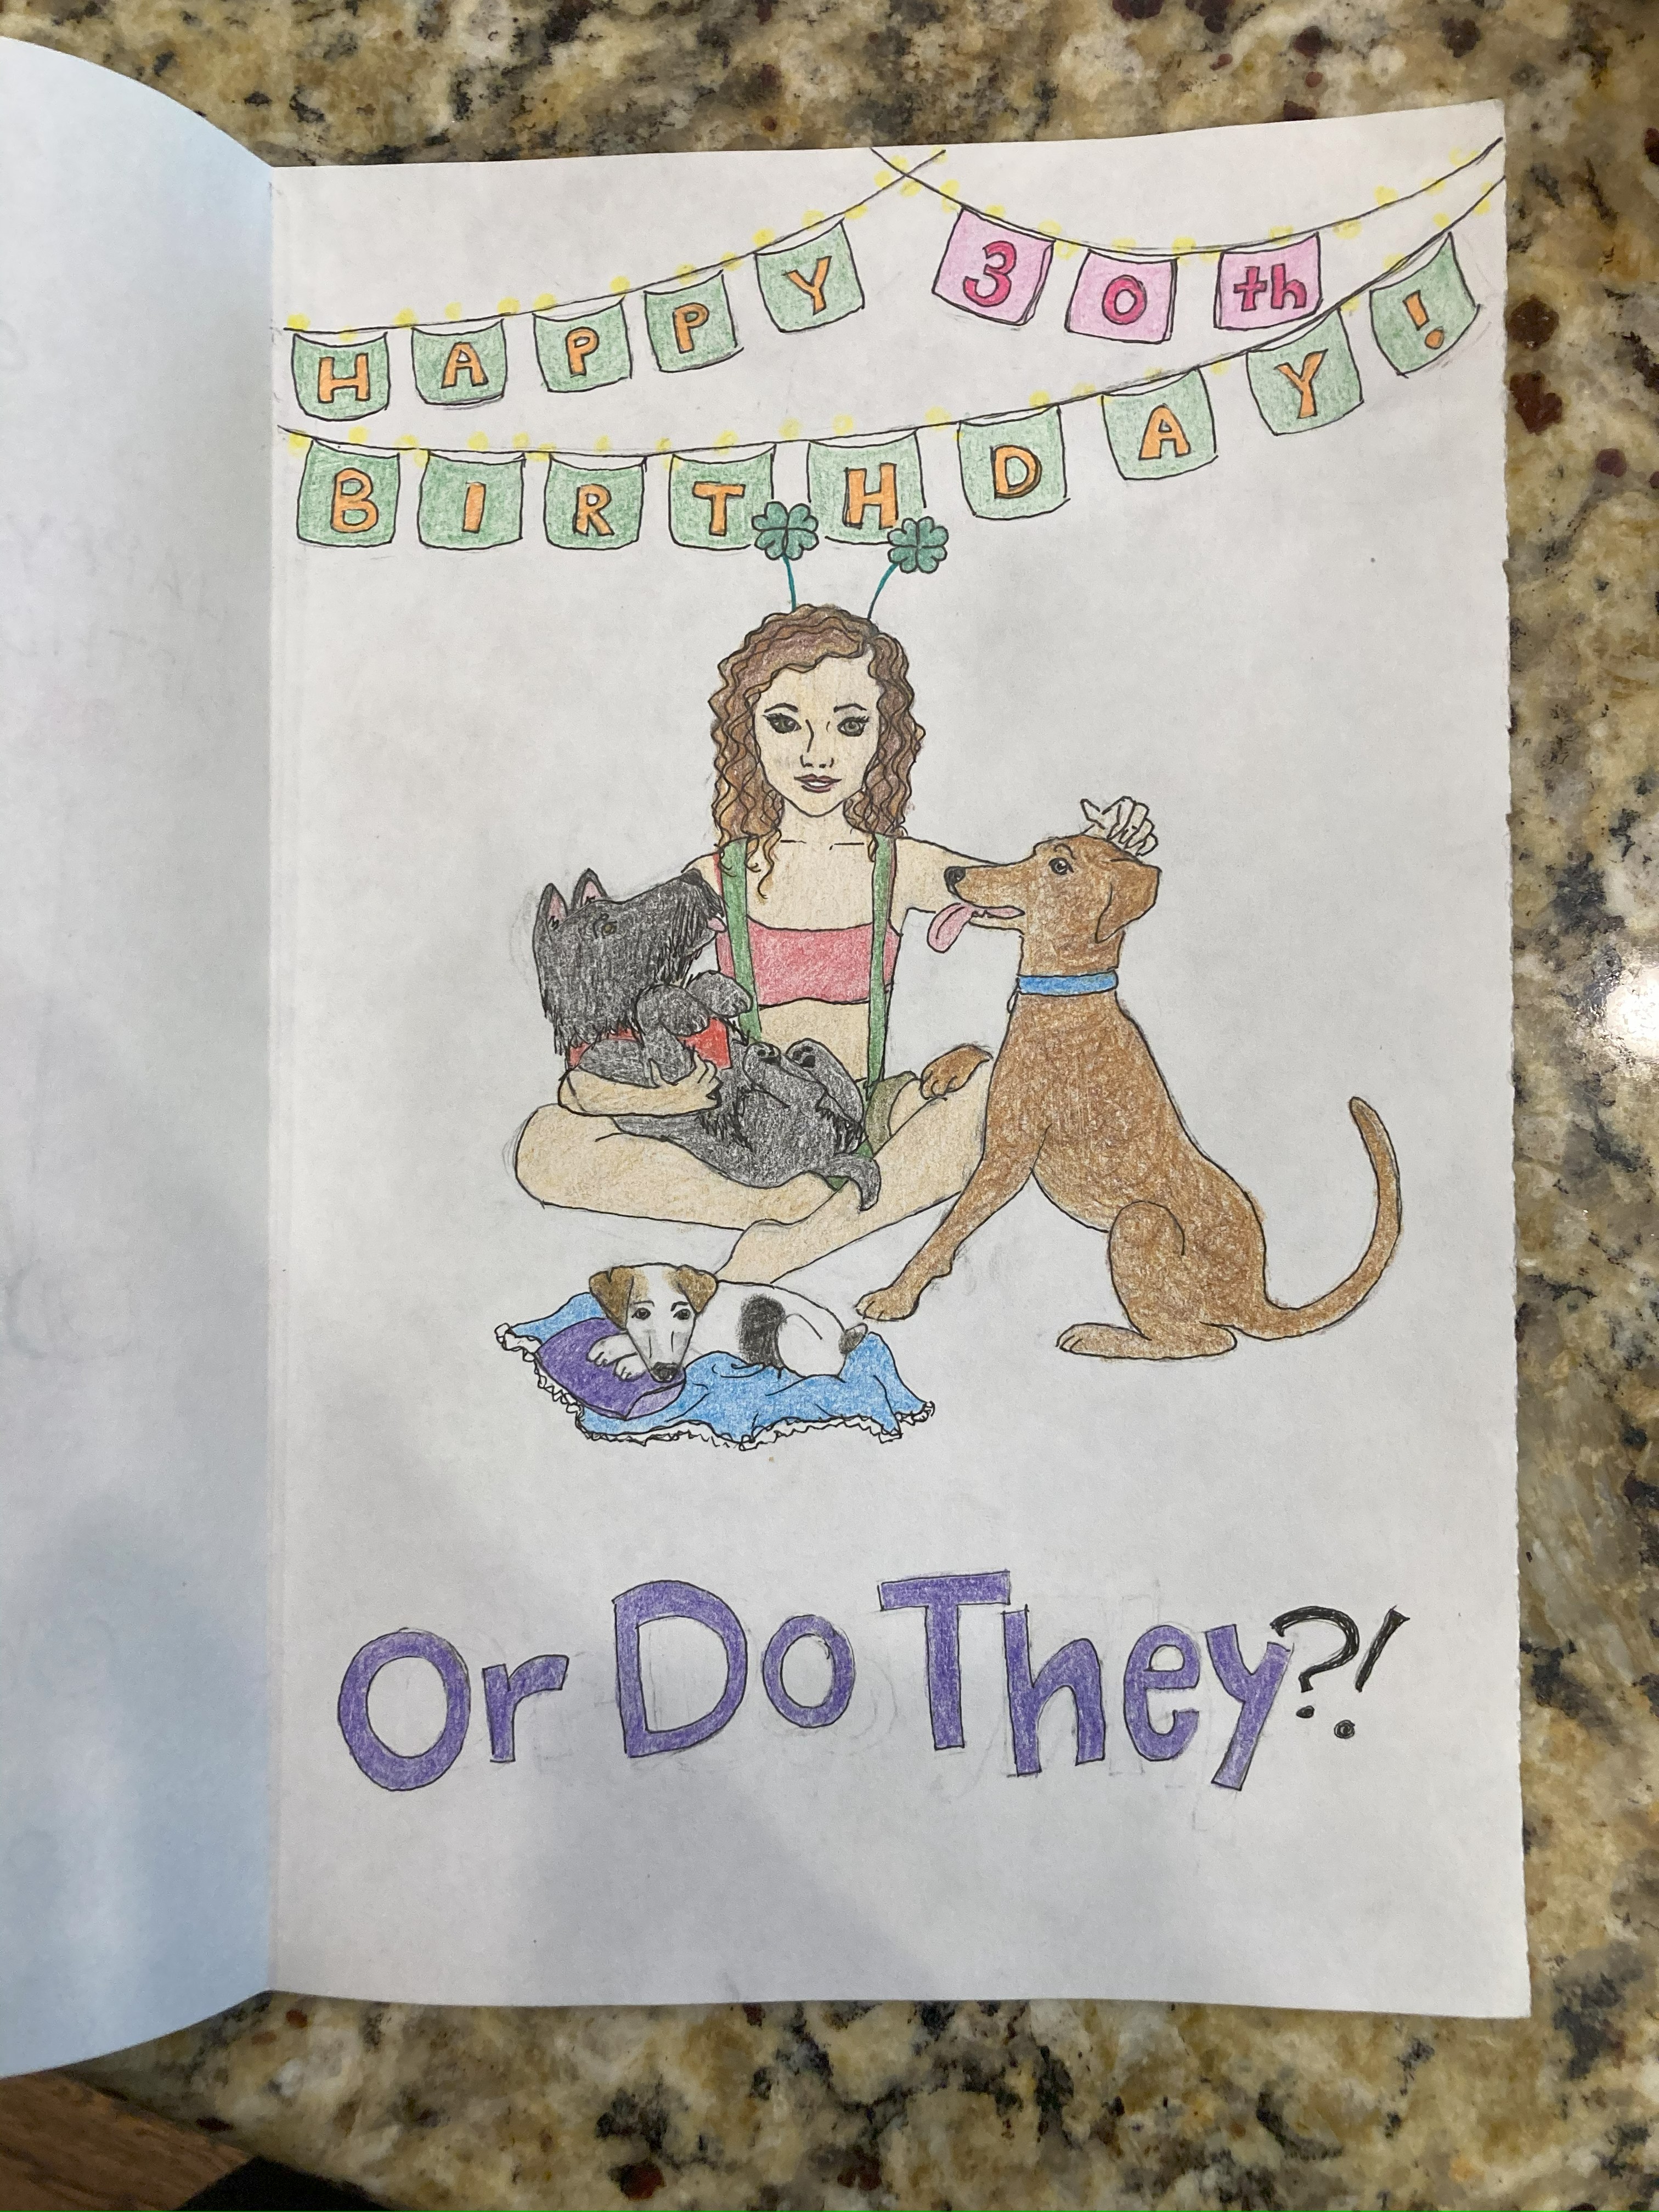 HAPPY 30th
BIRTHDAY!
Or Do They?!